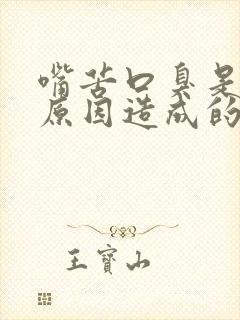 嘴苦口臭是
原因造成的
王寶山